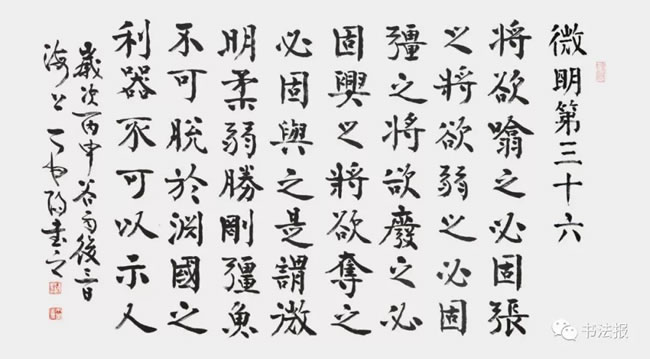 微明第三十六
將欲噏之必固張
之將欲弱之必固
彊之將欲廢之必
固興之將欲奪之
必固與之是謂微
明柔弱勝剛彊魚
不可脫於淵國之
利器不可以示人
歲次丙申谷雨後三日
海上丁書之
书法报